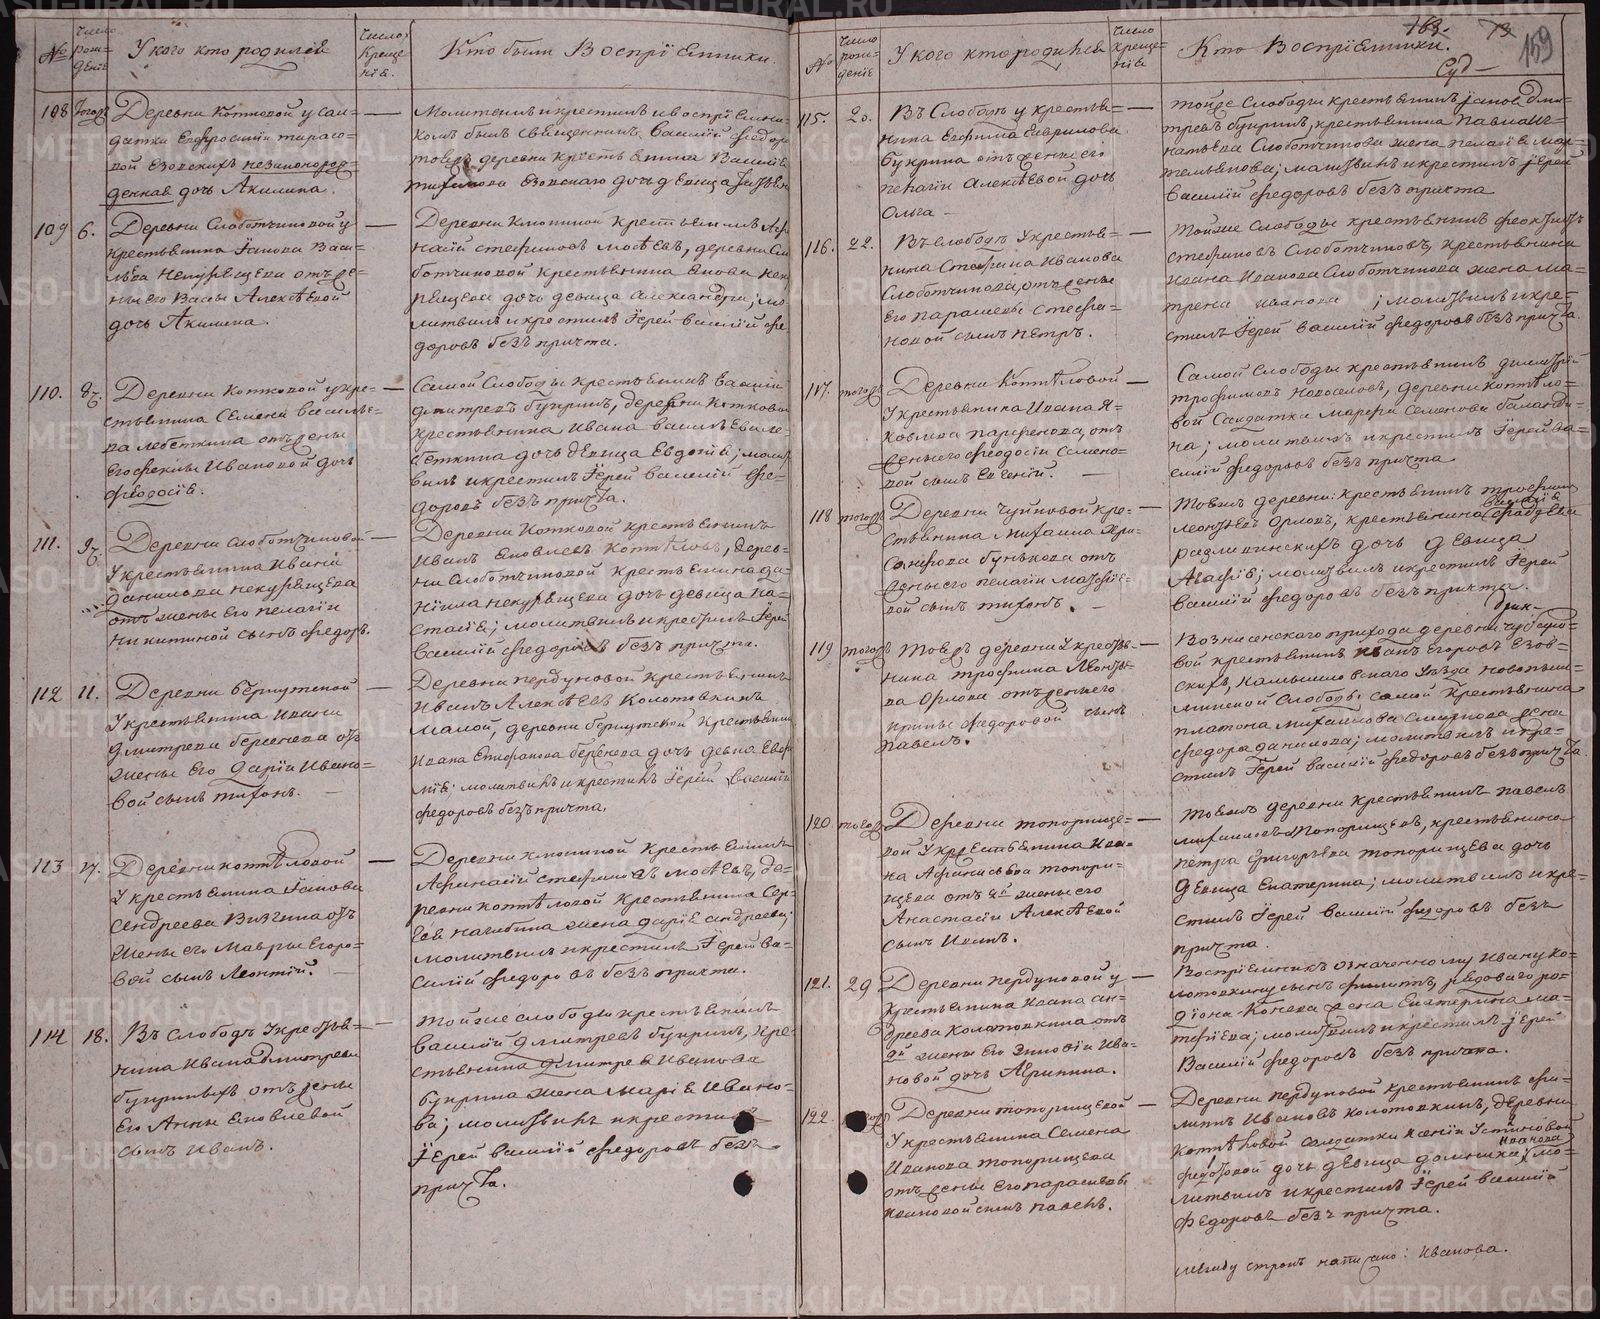 №
Число рождение
У кого кто родился
Число крещенія.
Кто были Воспрiемники.
108
тогож
Деревни Котковой у сол-
датки Евфросиніи тарасо-
вой Езовскихъ незаконорож-
денная дочь Акилина.
Молитвилъ и крестилъ и воспріемни-
комъ былъ священникъ Василій Федоро
тоеже деревни крестьянина Василія
109
6.
Деревни Слоботчиковой у
крестьянина Іакова Васи-
льева Некурящева отъ же-
ны его Вассы Алексѣевой
дочь Акилина.
Деревни Клюпиной крестьянинъ Аѳо-
насій стефановъ Мосѣевъ, деревни Сло
ботчиковой крестьянина Якова Неку
рящева дочь девица Александра; мо-
литвилъ и крестилъ Іерей Василій Фе-
доровъ безъ причта.
110.
8.
Деревни Котковой у кре-
стьянина Семена Василье-
ва Лебеткина отъ жены
Его феклы Ивановой дочь
Феодосія.
Самой Слободы крестьянинъ Василій
Дмитревъ Букринъ, деревни Котковой
крестьянина Ивана Васильева Ле-
беткина дочь дѣвица Евдокія; молит
вилъ и крестилъ Іерей Василій Фе-
доровъ безъ причта.
111.
9.
Деревни Слоботчиковой
У крестьянина Ивана
Данилова Некурящева
отъ жены Его Пелагіи
Никитиной сынъ Федоръ.
Деревни Котковой крестьянинъ
Иванъ Яковлевъ Коптѣловъ, дерев-
ни Слоботчиковой крестьянина Да-
ніила Некурящева дочь девица На-
стасія; молитвилъ и крестилъ Іерей
Василій Федоровъ безъ причта.
112
11.
Деревни Бермутской
У крестьянина Ивана
Дмитрева Берсенева отъ
жены Его Даріи Ивано-
вой сынъ тихонъ.
Деревни Пердуновой крестьянинъ
Иванъ Алексѣевъ Колотовкинъ
малой, деревни Бермутской крестьянин
Ивана Епифанова Берсенева дочь девка Евфи
мія; молитвилъ и крестилъ Іерей Василій
Федоровъ безъ причта.
113
17.
Деревни Коптѣловой
У крестьянина Іакова
Андреева Визгина отъ
жены его Мавры Егоро-
вой сынъ Леонтій.
Деревни Клюпиной крестьянинъ
Афонасій стефановъ Мосѣевъ, де-
ревни Коптѣловой крестьянина Сер-
гея Нагибина жена Дарія Андреева;
молитвилъ и крестилъ Іерей Ва-
силій Федоровъ безъ причта.
114
18.
Въ Слободѣ У крестья-
нина Ивана Дмитрева
Букриныхъ отъ жены
Его Анны Яковлевой
сынъ Иванъ.
тойже слободы крестьянинъ
Василій Дмитревъ Букринъ, кре-
стьянина Дмитрея Иванова
Букрина жена Марія Ивано-
ва; молитвилъ и крестилъ
Іерей Василій Федоровъ безъ
причта.
№
Число рождение
У кого кто родился
Число крещенія
Кто Воспріемники.
163.
73
159
Суд-
115.
20.
Въ Слободѣ у крестья-
нина Евфима Гаврилова
Букрина отъ жены его
Пелагіи Алексѣевой дочь
Ольга
тойже Слободы крестьянинъ Іаковъ Дми-
тревъ Букринъ, крестьянина Павла Иг-
натьева Слоботчикова жена Пелагія Мар-
темьянова; молитвилъ и крестилъ Іерей
Василій Федоровъ безъ причта
116.
22.
Въ слободѣ У крестья-
нина Стефана Иванова
Слоботчикова, отъ жены
Его Парасковьи Стефа-
новой сынъ Петръ.
Тойже Слободы крестьянинъ
Стефановъ Слоботчиковъ, крестьянина
Ивана Иванова Слоботчикова жена Ма-
трена Иванова; молитвилъ и кре-
стилъ Іерей Василій Федоровъ безъ причта.
117.
тогожъ
Деревни Коптѣловой
У крестьянина Ивана Я-
ковлева Парфенова, отъ
жены его Феодосіи Семено-
вой сынъ Евгеній.
Самой Слободы крестьянинъ Димитрій
трофимовъ Новоселовъ, деревни Коптѣло-
вой Солдатка Марфа Семенова Баланди-
на; молитвилъ и крестилъ Іерей Ва-
силій Федоровъ безъ причта
118
тогожъ
Деревни Чупиновой кре-
стьянина Михаила Хри-
санфова Бунькова отъ
жены его Пелагіи Матфѣе-
вой сынъ тихонъ.
Тоежъ деревни: крестьянинъ трофимъ
Леонтьевъ Орловъ, крестьянина Фадѣева
дочь девица
Агафія; молитвилъ и крестилъ Іерей
Василій Федоровъ безъ причта.
119
тогожъ
тоежъ деревни У крестья-
нина трофима Леонтье-
ва Орлова отъ жены его
Ирины Федоровой сынъ
Павелъ.
Вознесенскаго прихода деревни
вой крестьянинъ Иванъ Егоровъ Езов-
скихъ, Камышловскаго Уѣзда Новопыш-
минской Слободы самой крестьянина
Платона Михайлова Смирнова жена
Федора Данилова; молитвилъ и кре-
стилъ Іерей Василій Федоровъ безъ причта.
120
тогожъ
Деревни топорище-
вой У крестьянина Ива-
на Афонасьева топори-
щева отъ 2й жены его
Анастасіи Алексѣевой
сынъ Иванъ.
тоежъ деревни крестьянинъ Павелъ
Михайловъ топорищевъ, крестьянина
Петра Григорьева топорищева дочь
Девица Екатерина; молитвилъ и кре-
стилъ Іерей Василій Федоровъ безъ
причта.
121.
29
Деревни Пердуновой у
крестьянина Ивана Ан-
дреева Колотовкина отъ
2й жены его Зиновіи Ива-
новой дочь Агрипина.
Воспріемникъ означенному Ивану Ко-
лотовкину сынъ Филипъ, рядоваго Ро-
діона Конева жена Екатерина Ма-
тфѣева; молитвилъ и крестилъ Іерей
Василій Федоровъ безъ причта.
122.
Деревни топорищевой
У крестьянина Семена
Иванова топорищева
отъ жены его Парасковьи
Ивановой сынъ Павелъ.
Деревни Пердуновой крестьянинъ Фи-
липъ Ивановъ Колотовкинъ, деревни
Коптѣловой солдатки Ксеніи Устиновой
Федотовой дочь девица Домника Иванова; мо-
литвилъ и крестилъ Іерей Василій
Федоровъ безъ причта.
между строкъ написано: Иванова.
METRIKI.GASO-URAL.RU